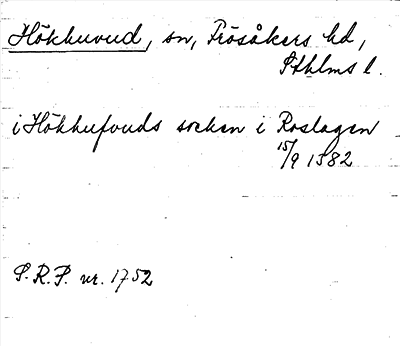 Hökhuvud, sn, Frösåkers hd,
Sthlms l.
i Hökhufvuds socken i Roslagen
15/9 1582
S.R.P. nr. 1752